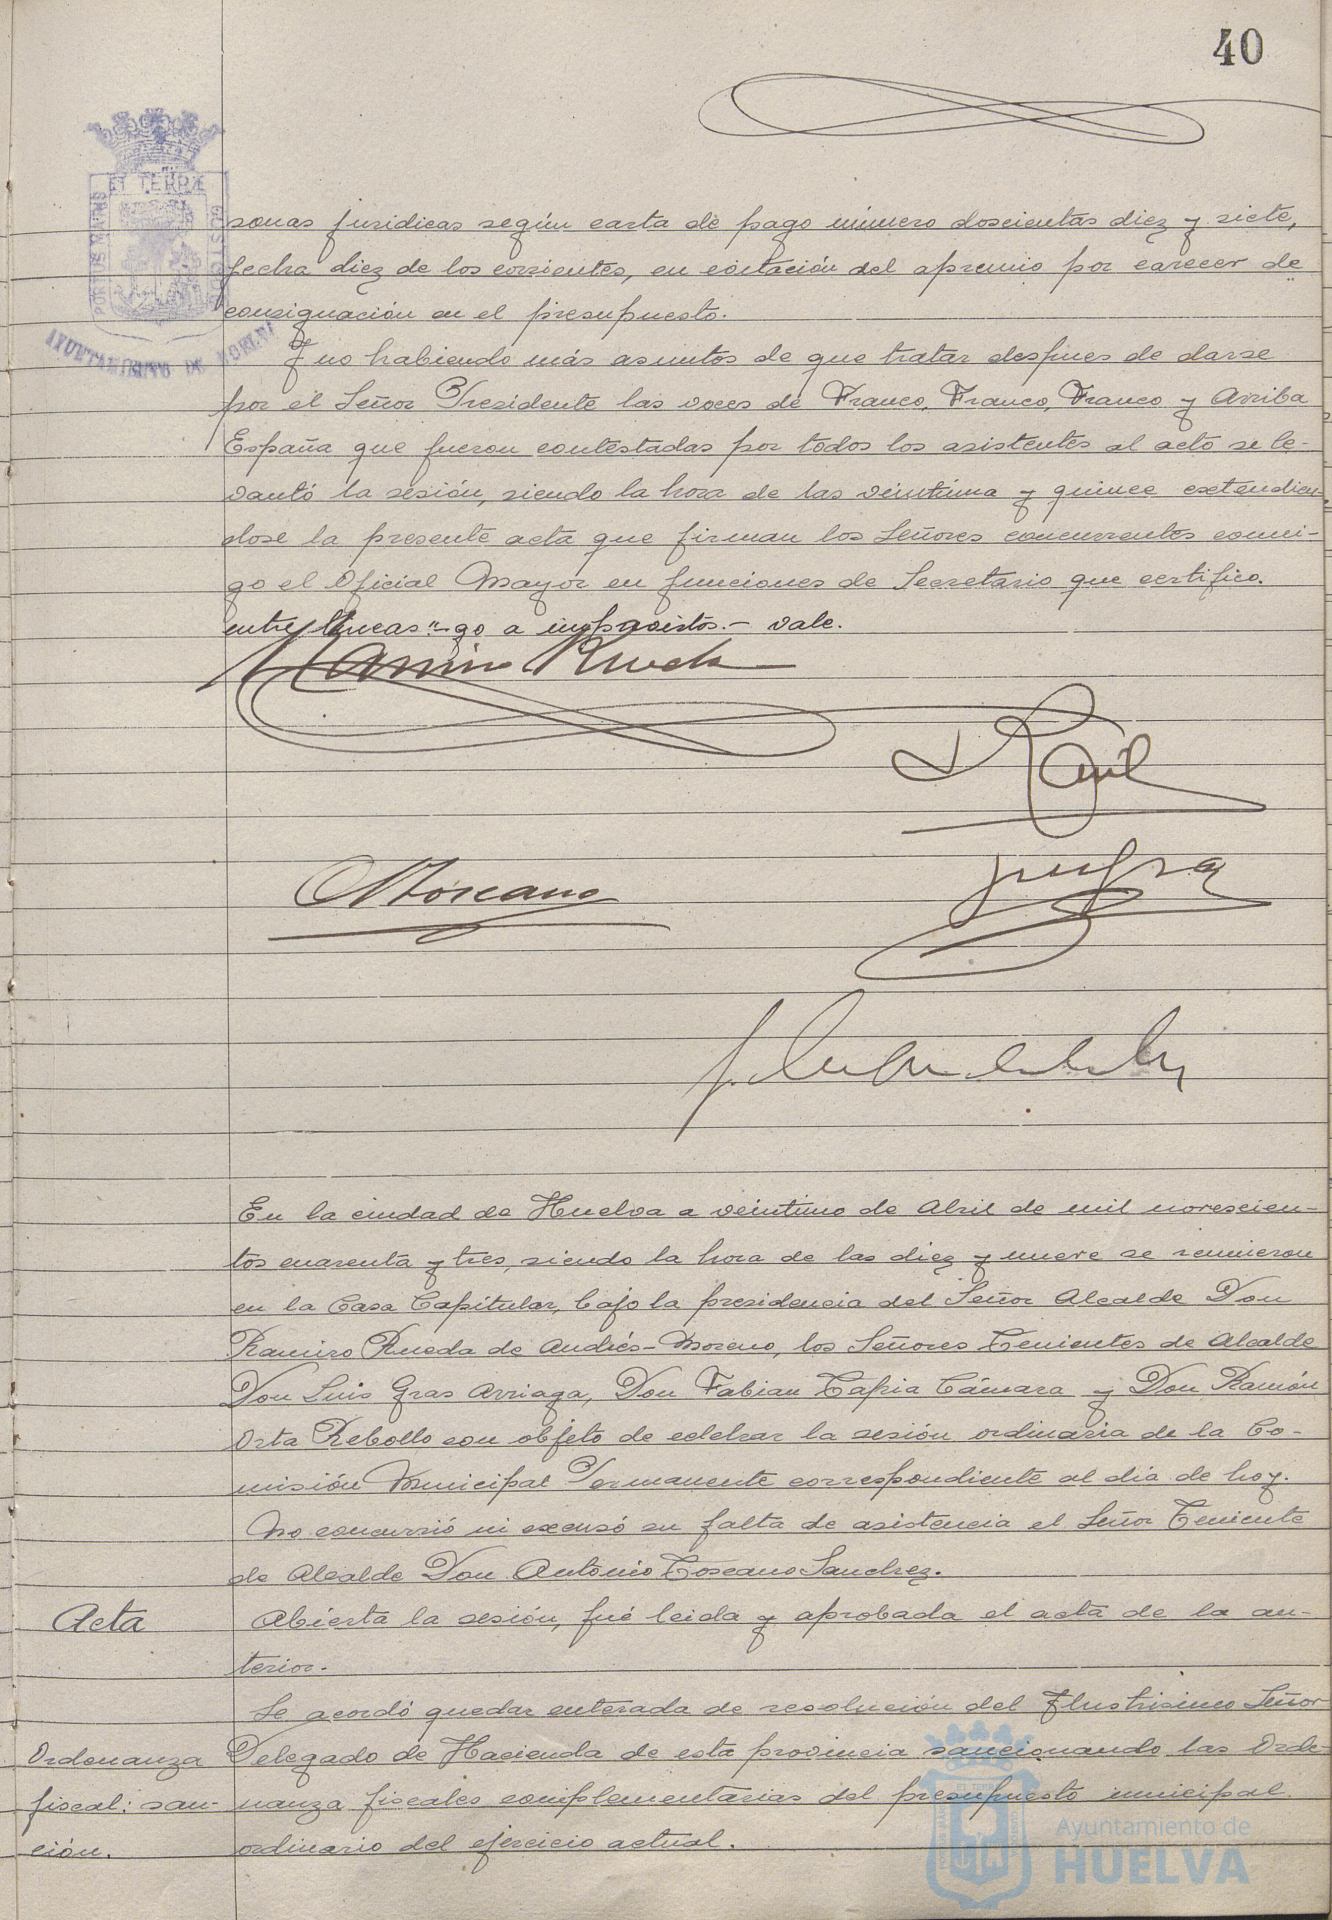 40
ET TERRÆ
PORTUS MARIS
CUSTODIA
AYUNTAMIENTO DE HUELVA
sonas juridicas según carta de pago número doscientas diez y siete,
fecha diez de los corrientes, en evitación del apremio por carecer de
consignación en el presupuesto.
Y no habiendo más asuntos de que tratar despues de darse
por el Señor Presidente las voces de Franco, Franco, Franco y Arriba
España que fueron contestadas por todos los asistentes al acto se le-
vantó la sesión, siendo la hora de las veintiuna y quince extendien-
dose la presente acta que firman los Señores concurrentes conmi-
go el Oficial Mayor en funciones de Secretario que certifico.
entre lineas "-go a imprevistos.- vale.
Ramiro Rueda
Toscano
En la ciudad de Huelva a veintiuno de Abril de mil novescien-
tos cuarenta y tres, siendo la hora de las diez y nueve se reunieron
en la Casa Capitular, bajo la presidencia del Señor Alcalde Don
Ramiro Rueda de Andrés-Moreno, los Señores Tenientes de Alcalde
Don Luis Gras Arriaga, Don Fabian Tapia Cámara y Don Ramón
Orta Rebollo con objeto de celebrar la sesión ordinaria de la Co-
misión Municipal Permanente correspondiente al dia de hoy.
No concurrió ni excusó su falta de asistencia el Señor Teniente
de Alcalde Don Antonio Toscano Sanchez.
Acta
Abierta la sesión, fué leida y aprobada el acta de la an-
terior.
Ordenanza
fiscal: san-
ción.
Se acordó quedar enterada de resolución del Ilustrisimo Señor
Delegado de Hacienda de esta provincia sancionando las Orde-
nanza fiscales complementarias del presupuesto municipal
ordinario del ejercicio actual.
Ayuntamiento de
HUELVA